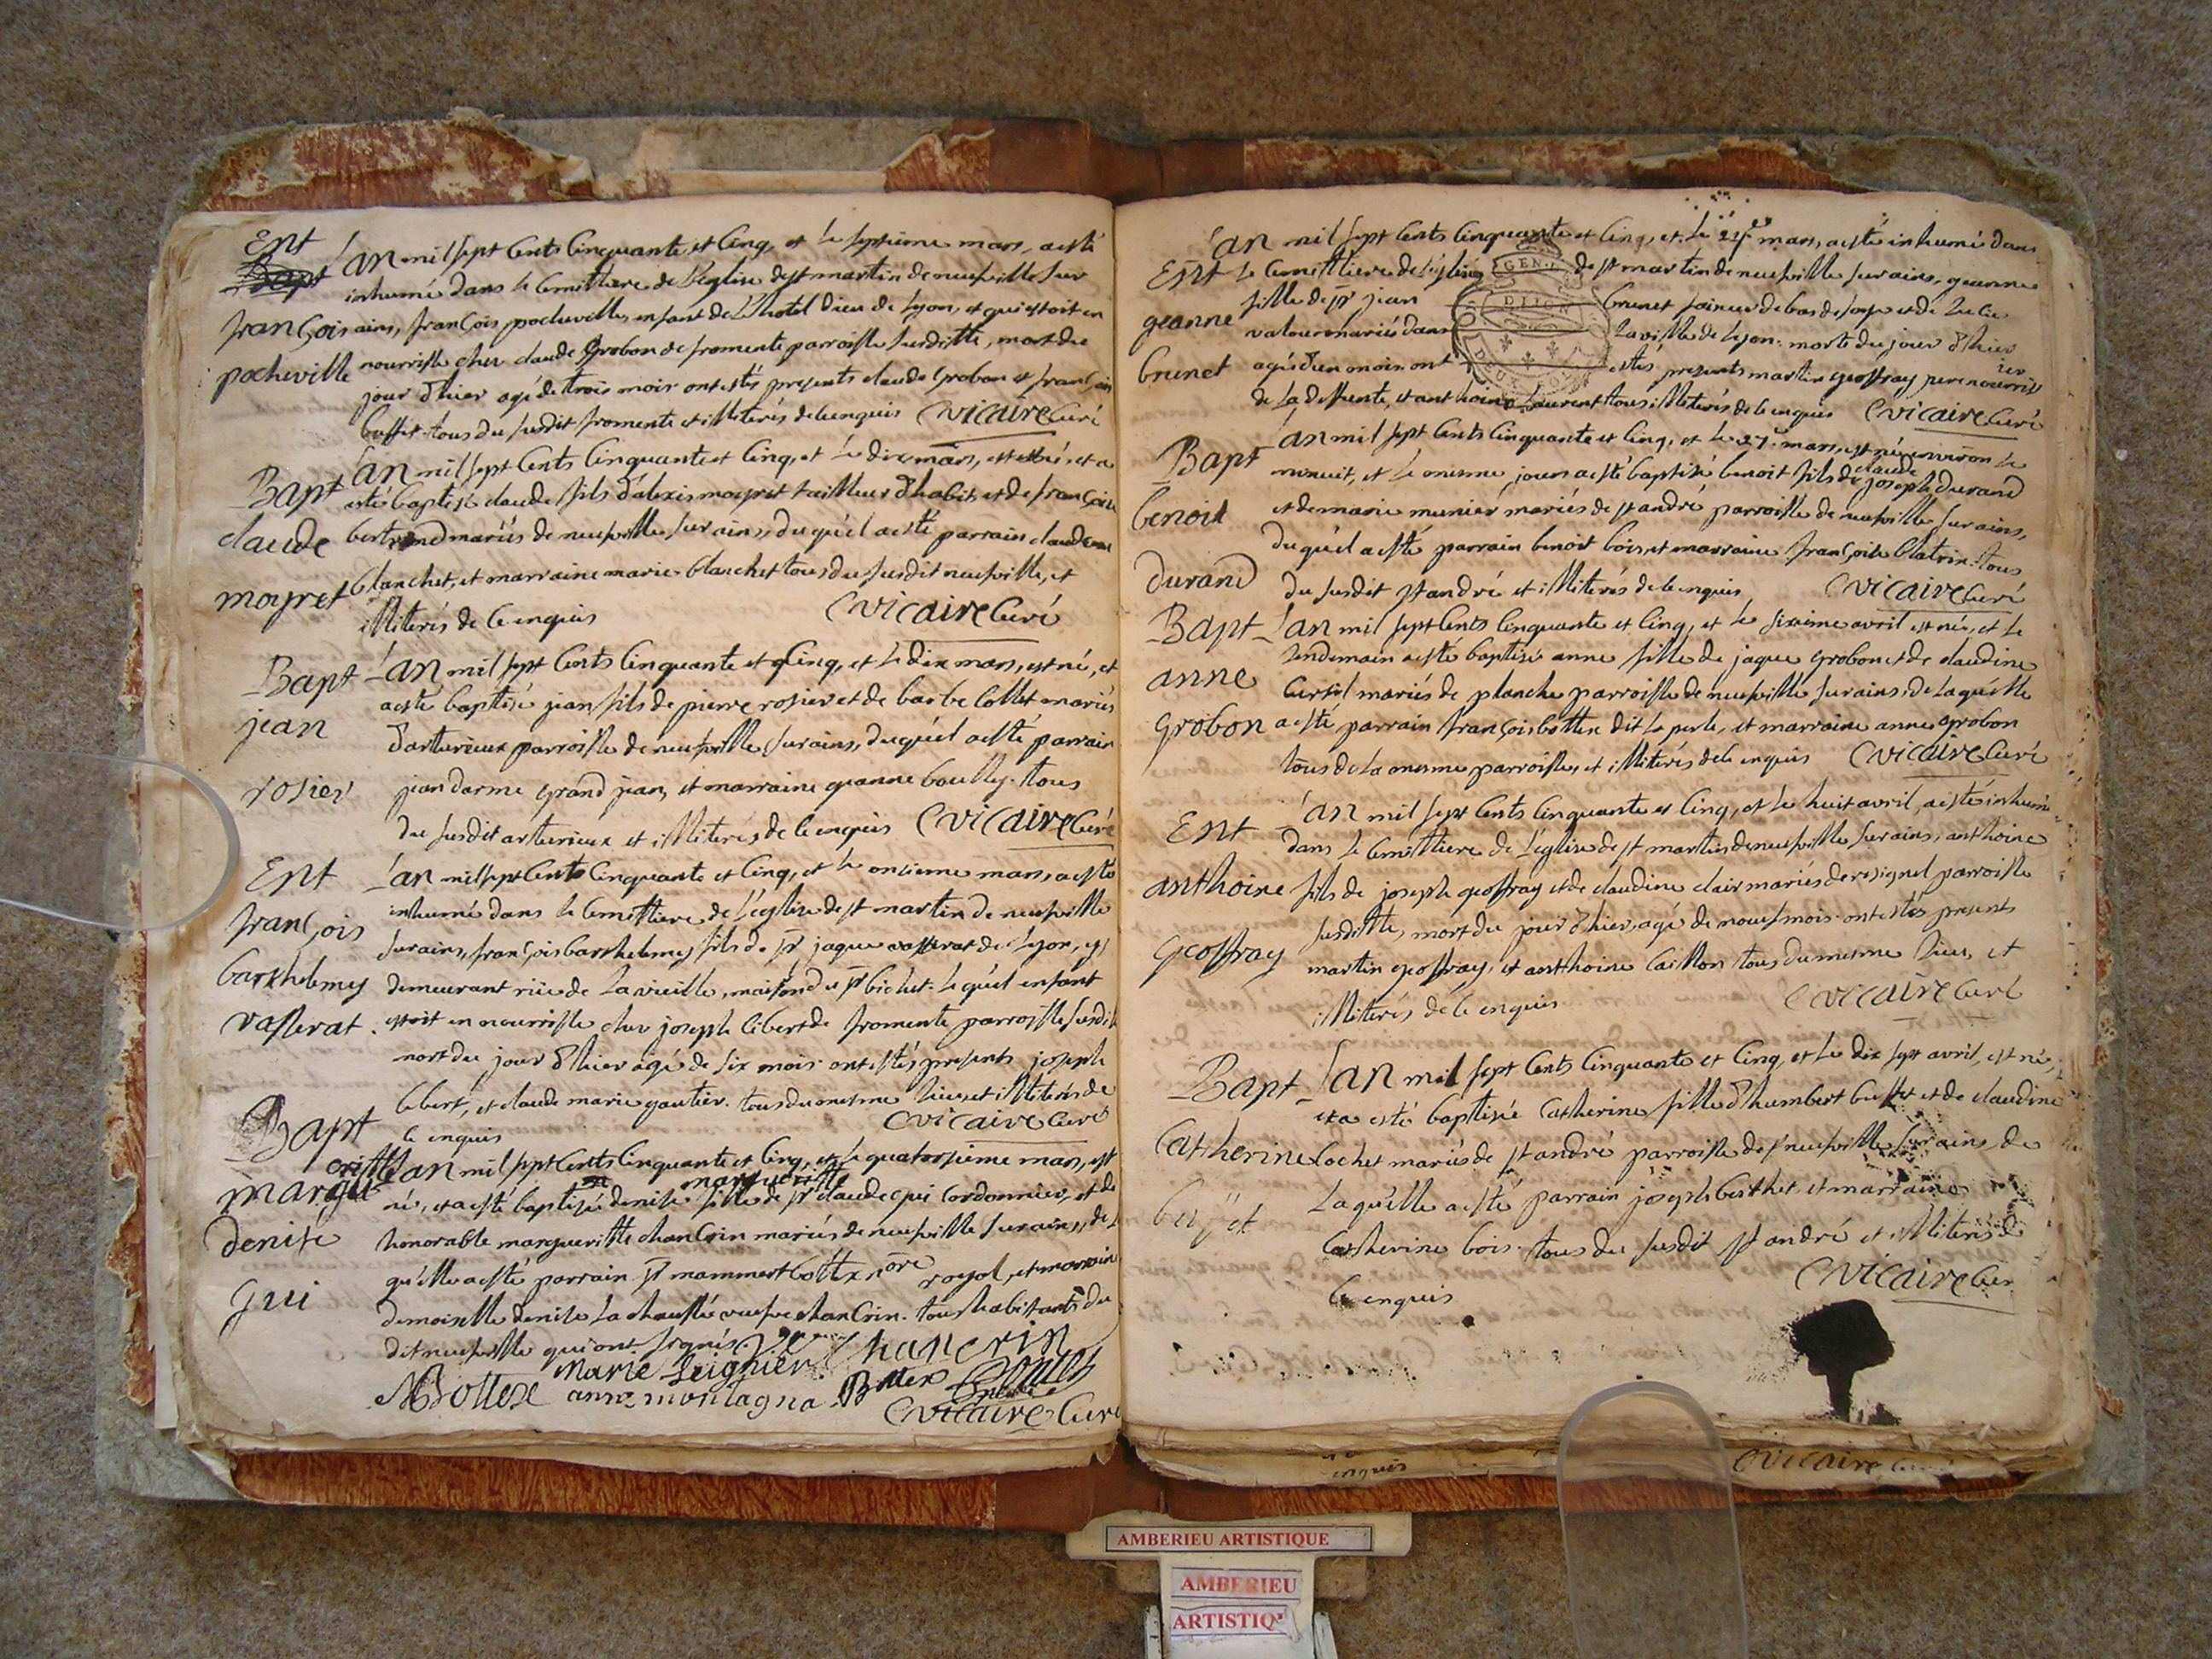 Ent
françois
pocheville
L'an mil sept Cents Cinquante et Cinq, et le septieme mars, a esté
inhumé dans le Cemittiere de L'église de st martin de neufville sur
ains, françois pocheville, enfant de L'hotel Dieu de Lyon, et qui estoit en
nourrisse cher claude Grobon de fromente parroisse susditte, mort du
jour d'hier agé de trois mois ont estés presents claude Grobon et françois
buffet tous du susdit fromente et illiterés de ce enquis Cvicaire Curé
Bapt
claude
moyret
L'an mil sept Cents Cinquante et Cinq, et Le dix mars, est né, et a
esté baptisé claude fils d'alexis moyret tailleur d'habits et de françoise
bertrand mariés de neufville sur ains, duquél a esté parrain claude
blanchet, et marraine marie blanchet tous du susdit neufville, et
illiterés de ce enquis Cvicaire Curé
Bapt
jean
rosier
L'an mil sept Cents Cinquante et Cinq, et Le dix mars, est né, et
a esté baptisé jean fils de pierre rosier et de barbe Collet mariés
d'arturieux parroisse de neufville sur ains, duquél a esté parrain
jean darme grand jean, et marraine jeanne boully. tous
du susdit arturieux et illiterés de ce enquis Cvicaire Curé
Ent
françois
barthelemy
vasserat
L'an mil sept Cents Cinquante et Cinq, et Le onzieme mars, a esté
inhumé dans le Cemittiere de L'église de st martin de neufville
sur ains, françois barthelemy fils de sr jaque vasserat de Lyon, y
demeurant rüe de La vieille, maison du sr bichet. Le quél enfant
estoit en nourrisse cher joseph Libert de fromente parroisse susditte
mort du jour d'hier agé de six mois ont estés presents joseph
Libert, et claude marie gautier. tous du mesme Lieu, et illiterés de
ce enquis Cvicaire Curé
Bapt
margueritte
denise
Gui
L'an mil sept Cents Cinquante et Cinq, et Le quatorsieme mars, est
né, et a esté baptisée denise margueritte fille de sr claude gui Cordonnier, et de
honorable margueritte chanCrin mariés de neufville sur ains, de La
quélle a esté parrain sr mammert bottex nore royal, et marraine
demoiselle denise La chaussé veufve chanCrin. tous habitants du
dit neufville qui ont signés. Chancrin
Marie
MBottex anne montagna Bottex
Cvicaire Curé
Ent
geanne
brunet
L'an mil sept Cents Cinquante et Cinq, et Le mars, a esté inhumé dans
Le Cemittiere de L'église de st martin de neufville sur ains, geanne
fille de sr jean brunet faiseur de bas de soye et de
mariés dans La ville de Lyon. morte du jour d'hier
agé d'un mois ont estés presents martin geoffray pere nourricier
de La deffunte, et anthoine Laurent tous illiterés de ce enquis Cvicaire Curé
Bapt
benoit
durand
L'an mil sept Cents Cinquante et Cinq, et Le 27e mars, est né environ Le
minuit, et Le mesme jour a esté baptisé benoit fils de claude joseph durand
et de marie munier mariés de st andré parroisse de neufville sur ains,
duquél a esté parrain benoit bois, et marraine françoise blatrin. tous
du susdit st andré et illiterés de ce enquis Cvicaire Curé
Bapt
anne
Grobon
L'an mil sept Cents Cinquante et Cinq, et Le sixieme avril est née, et Le
lendemain a esté baptisée anne fille de jaque grobon et de claudine
mariés de planche parroisse de neufville sur ains, de La quélle
a esté parrain françois bottex dit La perle, et marraine anne grobon
tous de La mesme parroisse, et illiterés de ce enquis Cvicaire Curé
Ent
anthoine
Geoffray
L'an mil sept Cents Cinquante et Cinq, et Le huit avril, a esté inhumé
dans Le Cemittiere de L'église de st martin de neufville sur ains, anthoine
fils de joseph geoffray et de claudine clair mariés de resignel parroisse
susditte, mort du jour d'hier, agé de neuf mois ont estés presents
martin geoffray, et anthoine Caillon tous du mesme Lieu, et
illiterés de ce enquis Cvicaire Curé
Bapt
Catherine
L'an mil sept Cents Cinquante et Cinq, et Le dix sept avril, est née,
et a esté baptisée Catherine fille d'humbert buffet et de claudine
Cochet mariés de st andré parroisse de neufville sur ains, de
La quélle a esté parrain joseph berthet, et marraine
Catherine bois. tous du susdit st andré et illiterés de
Ce enquis Cvicaire Cur
enquis Cvicaire
AMBERIEU ARTISTIQUE
AMBERIEU
ARTISTIQ